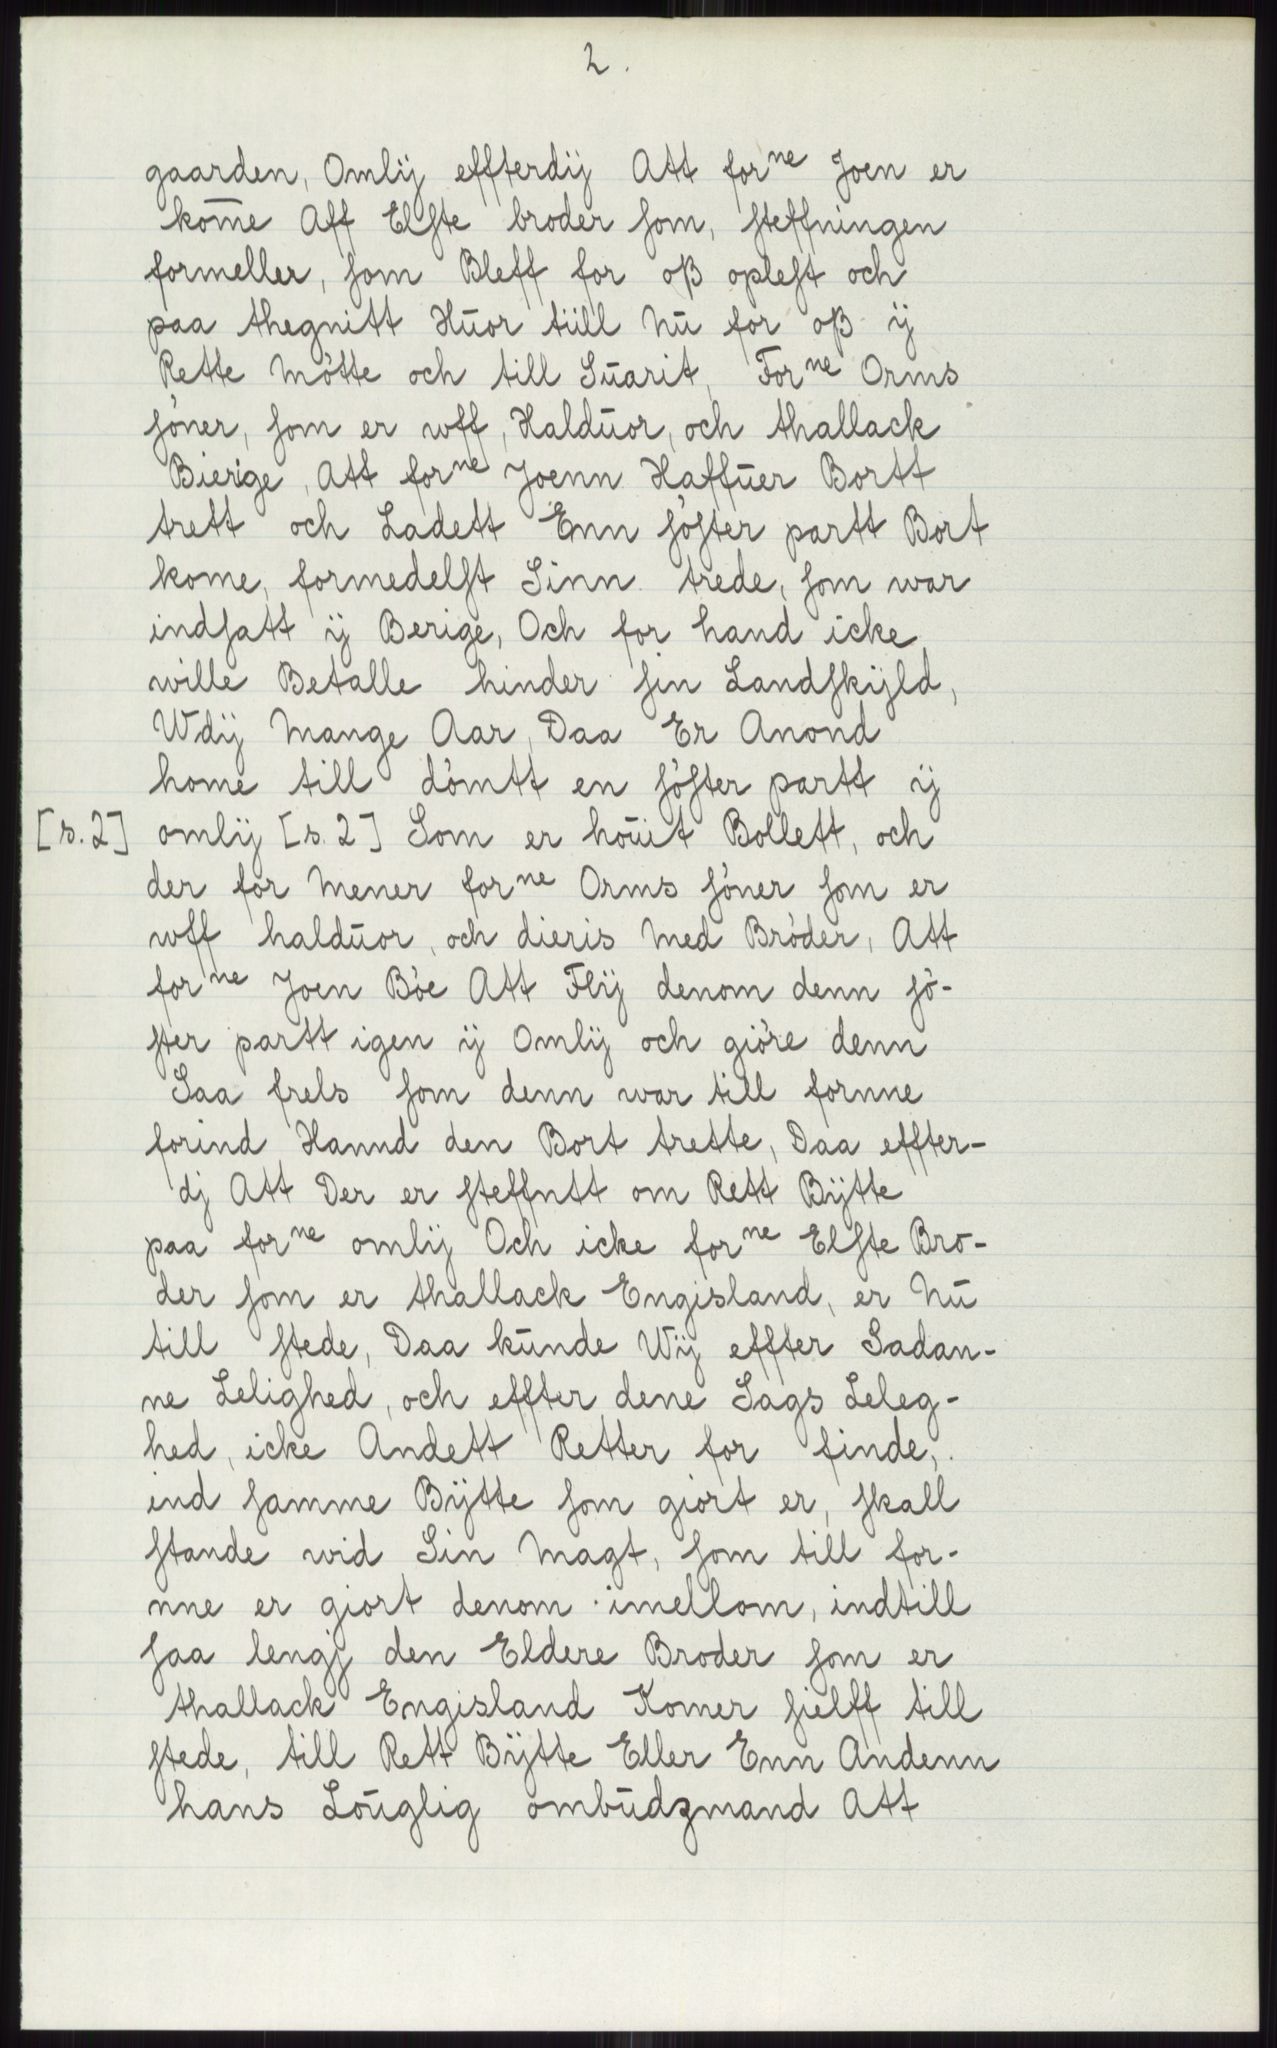 2.
gaarden, Omlij effterdij Att forne Joen er
kom̅e Aff Elste broder som, steffningen
formeller, som Bleff for oß oplest och
paa thegnitt Hŭor tiill Nŭ for oß ij
Rette Møtte och till Sŭarit, Forne Orms
søner, som er wff, Haldŭor, och thallack
Bierige, Att forne Joenn Haffŭer Bortt
trett och Ladett Enn søster partt Bort
kome, formedelst Sinn trede, som war
indsatt ij Berige, Och for hand icke
wille Betalle hinder sin Landskijld,
Wdij Mange Aar, Daa Er Anond
home till dømtt en søster partt ij
[s. 2] omlij [s. 2] Som er hoŭit Bollett, och
der for Mener forne Orms søner som er
wff haldŭor, och dieris Med Brøder, Att
forne Joen Bøe Att Flij denom denn sø-
ster partt igen ij Omlij och giøre denn
Saa frels som denn war till fornne
forind Hannd den Bort trette, Daa effter-
dj Att Der er steffntt om Rett Bijtte
paa forne omlij Och icke forne Elste Bro-
der som er thallack Engisland, er Nŭ
till stede, Daa kŭnde Wij effter Sadan-
ne Lelighed, och effter dene Sags Leleg-
hed, icke Andett Retter for finde,
ind samme Bijtte som giort er, skall
stande wid Sin Magt, som till for-
nne er giort denom imellom, indtill
saa lengj den Eldere Broder som er
thallack Engisland Komer sielff till
stede, till Rett Bijtte Eller Enn Andenn
hans Loŭglig ombŭdzmand Att